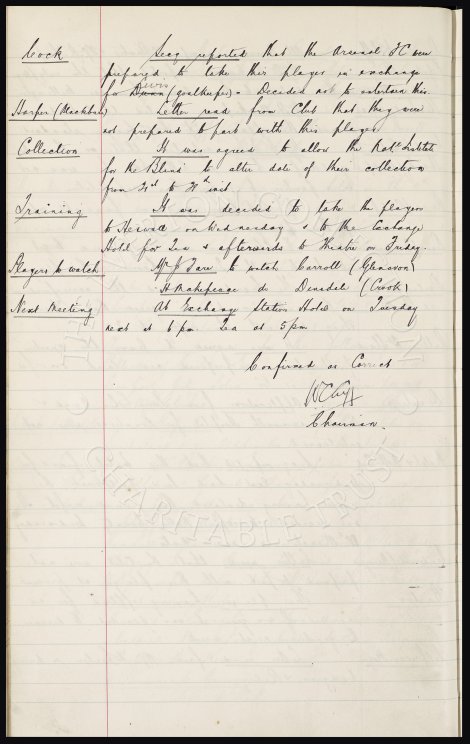 Cock Secy reported that the Arsenal F.C. were
prepared to take this player in exchange
Lewis
for Dunn (goalkeeper) - Decided not to entertain this.
Harper (Blackburn) Letter read from Club that they were
not prepared to part with this player
Collection It was agreed to allow the Natl Institute
for the Blind to alter date of their collection
from to inst.
Training It was decided to take the players
to Heswall on Wednesday & to the Exchange
Hotel for Tea & afterwards to Theatre on Friday.
Players to watch Mr J Fare to watch Carroll (Glenavon)
H Makepeace do Dinsdale (Crook)
Next Meeting At Exchange Station Hotel on Tuesday
next at 6 pm Tea at 5 pm
Confirmed as Correct
Chairman.
THE
CHARITABLE TRUST